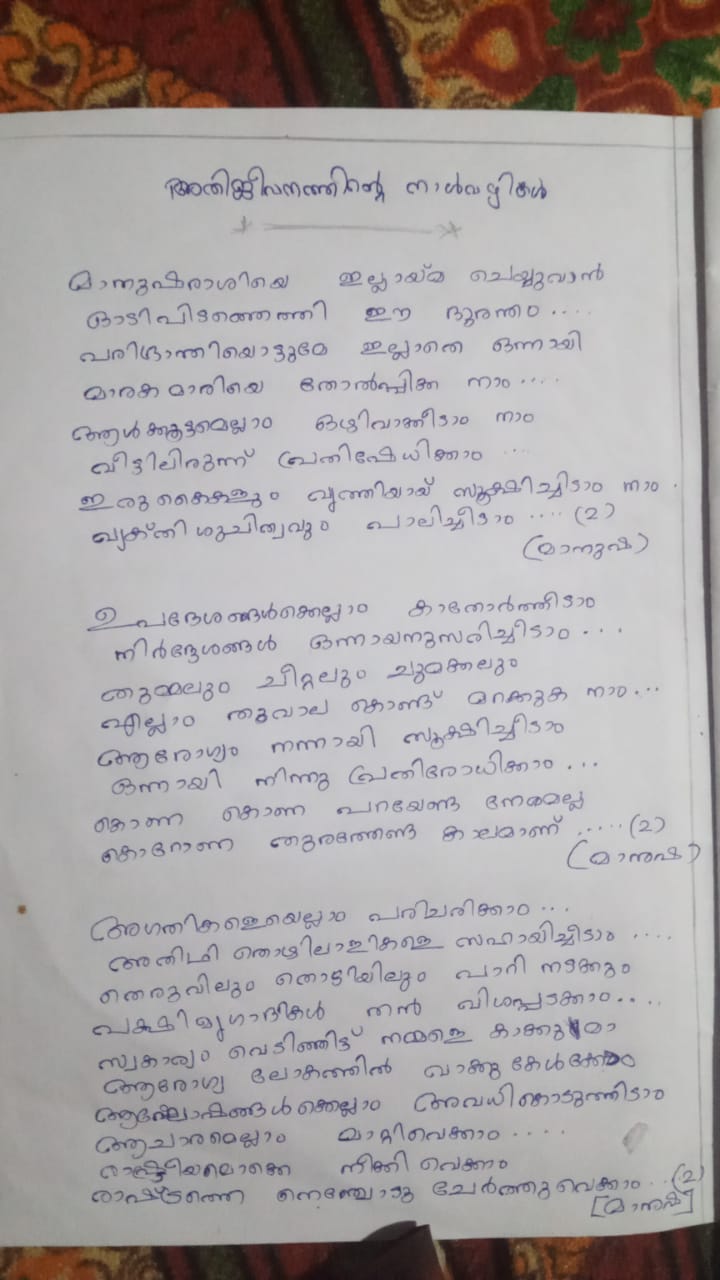 അതിജീവനത്തിന്റെ നാൾവഴികൾ
മാനുഷരാശിയെ ഇല്ലായ്മ ചെയ്യുവാൻ
ഓടിപിടഞ്ഞെത്തി ഈ ദുരന്തം ....
പരിഭ്രാന്തിയൊട്ടുമേ ഇല്ലാതെ ഒന്നായി
മാരക മാരിയെ തോൽപ്പിക്ക നാം ....
ആൾക്കൂട്ടമെല്ലാം ഒഴിവാക്കീടാം നാം
വീട്ടിലിരുന്ന് പ്രതിഷേധിക്കാം ...
ഇരുകൈകളും വൃത്തിയായ് സൂക്ഷിച്ചിടാം നാം .
വ്യക്തിശുചിത്വവും പാലിച്ചീടാം .... (2)
(മാനുഷ)
ഉപദേശങ്ങൾക്കെല്ലാം കാതോർത്തീടാം
നിർദ്ദേശങ്ങൾ ഒന്നായനുസരിച്ചീടാം ...
തുമ്മലും ചീറ്റലും ചുമക്കലും
എല്ലാം തൂവാല കൊണ്ട് മറക്കുക നാം...
ആരോഗ്യം നന്നായി സൂക്ഷിച്ചീടാം
ഒന്നായി നിന്നു പ്രതിരോധിക്കാം ...
കൊണ കൊണ പറയേണ്ട നേരമല്ല
കൊറോണ തുരത്തേണ്ട കാലമാണ് ..... (2)
(മാനുഷ)
അഗതികളെയെല്ലാം പരിചരിക്കാം ...
അതിഥി തൊഴിലാളികളെ സഹായിച്ചീടാം ....
തെരുവിലും തൊട്ടിയിലും പാറി നടക്കും
പക്ഷിമൃഗാദികൾ തൻ വിശപ്പടക്കാം....
സ്വകാര്യം വെടിഞ്ഞിട്ട് നമ്മളെ കാക്കുമാ
ആരോഗ്യ ലോകത്തിൻ വാക്കു കേൾക്കാം
ആഘോഷങ്ങൾക്കെല്ലാം അവധികൊടുത്തിടാം
ആചാരമെല്ലാം മാറ്റിവെക്കാം ....
രാഷ്ട്രീയമൊക്കെ നീക്കി വെക്കാം
രാഷ്ട്രത്തെ നെഞ്ചോടു ചേർത്തുവെക്കാം .. (2)
[മാനുഷ]